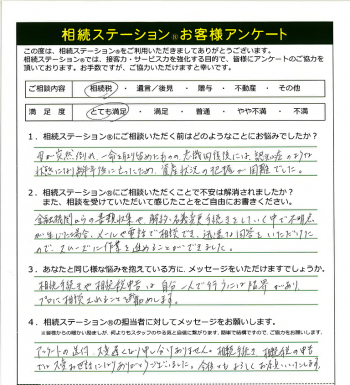 相続ステーション®お客様アンケート
この度は、相続ステーション®をご利用いただきましてありがとうございます。
相続ステーション®では、接客力・サービス力を強化する目的で、皆様にアンケートのご協力を
頂いております。お手数ですが、ご協力いただけますと幸いです。
ご相談内容 相続税 ・ 遺言／後見 ・ 贈与 ・ 不動産 ・ その他
満足度 とても満足 ・ 満足 ・ 普通 ・ やや不満 ・ 不満
1．相続ステーション®にご相談いただく前はどのようなことにお悩みでしたか？
母が突然倒れ、一命を取り留めたものの意識回復後には認知症のような
状態になり半年後に亡くなったため、資産状況の把握が困難でした。
2．相続ステーション®にご相談いただくことで不安は解消されましたか？
また、相談を受けていただいて感じたことをご自由にお書きください。
金融機関からの書類収集や解約・名義変更手続きをしていく中で不明点
が生じた場合、メールや電話で相談でき、迅速な回答をいただけた
ので、スムーズに作業を進めることができました。
3．あなたと同じ様な悩みを抱えている方に、メッセージをいただけますでしょうか。
相続手続きや相続税申告は自分一人で行うには限界があり、
プロに相談されることをお勧めします。
4．相続ステーション®の担当者に対してメッセージをお願いします。
アンケートの送付、大変遅くなり申し訳ありません。相続手続き、相続税の申告
では大変お世話になりありがとうございました。今後ともよろしくお願いいたします。